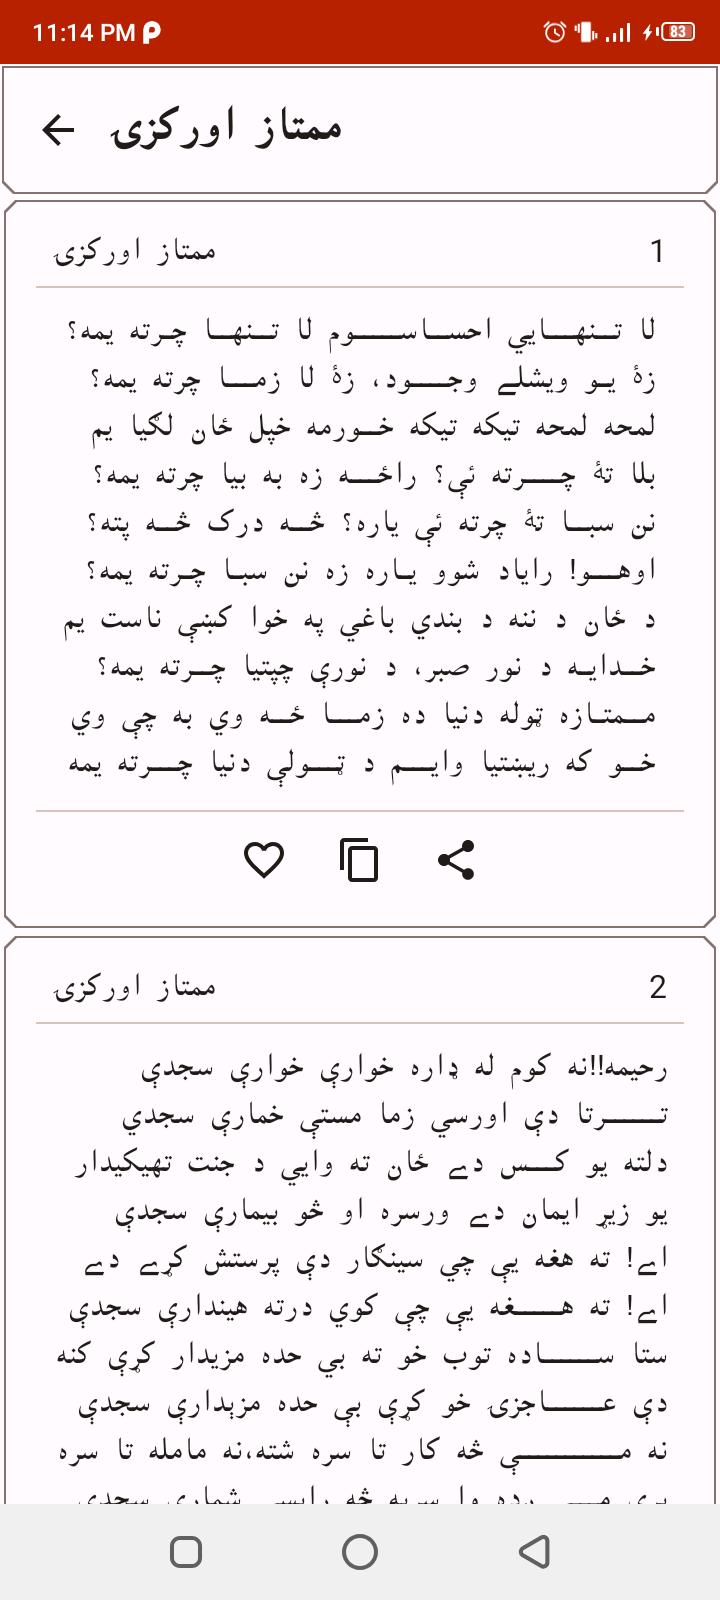 11:14 PM
83
ممتاز اورکزی
ممتاز اورکزی
1
لا تـنهـــايي احســاســــوم لا تــنهــا چـرته يمه؟
زۀ يــو ويشلے وجــــود، زۀ لا زمـــا چرته يمه؟
لمحه لمحه تيکه تيکه خــورمه خپل ځان لګيا يم
بلا تۀ چــــرته ئې؟ راځـــه زه به بيا چرته يمه؟
نن سبــا تۀ چرته ئې ياره؟ څــه درک څــه پته؟
اوهـــو! راياد شوو يــاره زه نن سبـا چـرته يمه؟
د ځان د ننه د بندي باغي په خوا کښې ناست يم
خــدايـه د نور صبر، د نورې چپتيا چــرته يمه؟
مــمتـازه ټوله دنيا ده زمـــا څــه وي به چې وي
خــو که ريښتيا وايـــم د ټــــولې دنيا چـــرته يمه
ممتاز اورکزی
2
رحيمه!!نه کوم له ډاره خوارې خوارې سجدې
تـــــــرتا دې اورسي زما مستې خمارې سجدې
دلته يو کـــس دے ځان ته وايي د جنت تهيکيدار
يو زېړ ايمان دے ورسره او څو بيمارې سجدې
اے! ته هغه يې چي سينګار دې پرستش کړے دے
اے! ته هـــــغه يې چې کوي درته هيندارې سجدې
ستا ســــــاده توب خو ته بي حده مزيدار کړې کنه
دې عــــــاجزۍ خو کړې بې حده مزېدارې سجدې
نه مــــــــــې څه کار تا سره شته،نه مامله تا سره